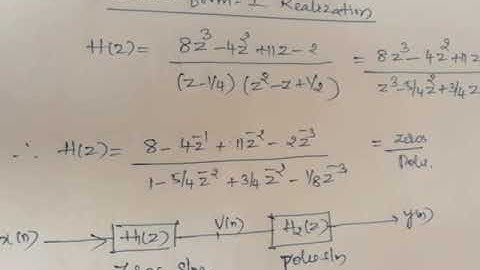 Form-I Realization
H(z) = 8z³-4z²+11z-2 / (z-1/4)(z²-z+1/2) = 8z³-4z²+11z / z³-5/4z²+3/4z
∴ H(z) = 8-4z⁻¹+11z⁻²-2z⁻³ / 1-5/4z⁻²+3/4z⁻²-1/8z⁻³ = zeros / Pole.
x(n) → H₁(z) V(n) H₂(z) → y(n)
zeros s/n poles s/n